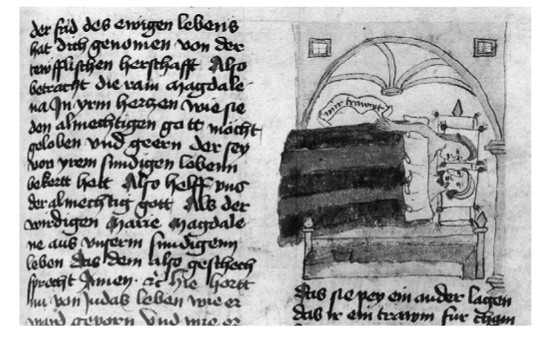 der frid des ewigen lebens
hat dich genomen von der
tewfflischen herschafft Also
betracht die rain magdale
na Jn yrm herczen wie sie
den almechtigen gott möcht
geloben vnd geern der sey
von yrem sundigen lebenn
bekertt hett Also helff vns
der almechtig gott Als der
wirdigen Marie magdale
ne aus vnserm sundigenn
leben das dem also geschech
sprecht Amen. Hie hortt
nu von Judas leben wie er
ward geporn vnd wie er
mir trawmt
das sie pey ein ander lagen
das ir ein trawm fur cham